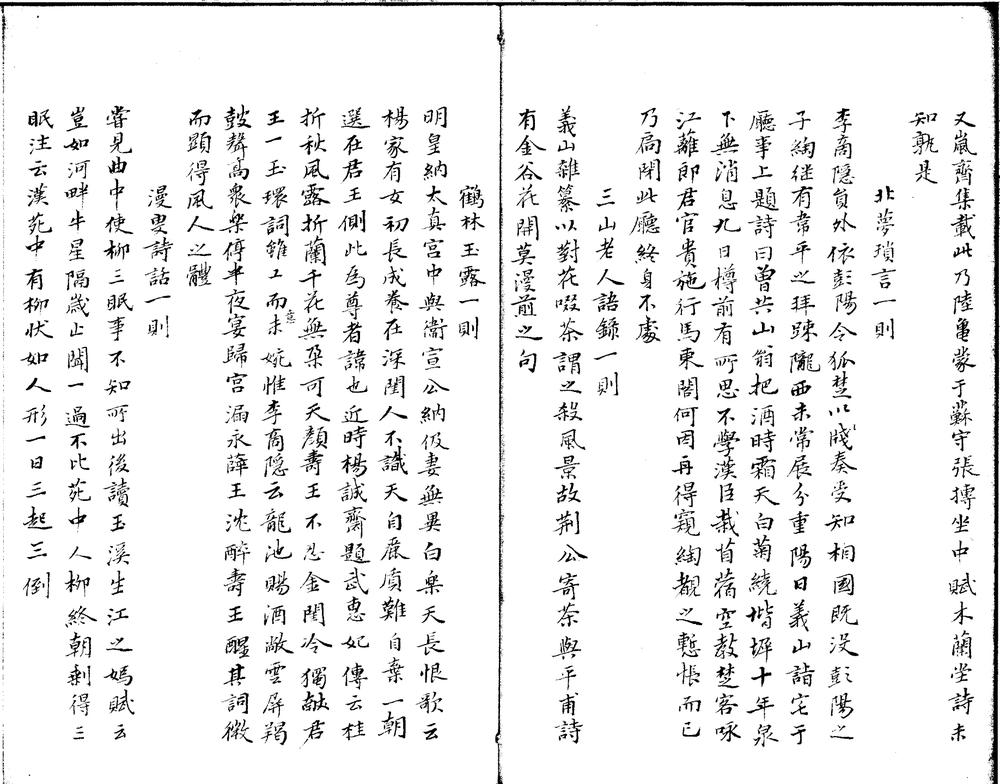 又嵐齋集載此乃陸龜蒙于蘇守張摶坐中賦木蘭堂詩未
知孰是
北夢瑣言一則
李商隱員外依彭陽令狐楚以牋奏受知相國既没彭陽之
子綯继有韋平之拜踈隴西未常展分重陽日義山詣宅于
廳事上題詩曰曾共山翁把酒時霜天白菊繞堦墀十年泉
下無消息九日樽前有所思不學漢臣栽苜蓿空教楚客咏
江蘺郎君官貴施行馬東閣何因再得窺綯覩之慙悵而已
乃扃閉此廳終身不處
三山老人語錄一則
義山雜纂以對花啜茶謂之殺風景故荆公寄茶與平甫詩
有金谷花開莫漫煎之句
鶴林玉露一則
明皇納太真宫中與衞宣公納伋妻無異白樂天長恨歌云
楊家有女初長成養在深閨人不識天自麋質難自棄一朝
選在君王側此為尊者諱也近時楊誠齋題武惠妃傳云桂
折秋風露折蘭千花無朶可天顏壽王不忍金閨冷獨献君
王一玉環詞雖工而未意婉惟李商隱云龍池賜酒敞雲屏羯
鼓聲高衆樂停半夜宴歸宫漏永薛王沈醉壽王醒其詞微
而顯得風人之體
漫叟詩話一則
嘗見曲中使柳三眠事不知所出後讀玉溪生江之嫣賦云
豈如河畔牛星隔歲止聞一過不比苑中人柳終朝剩得三
眠注云漢苑中有柳状如人形一日三起三倒